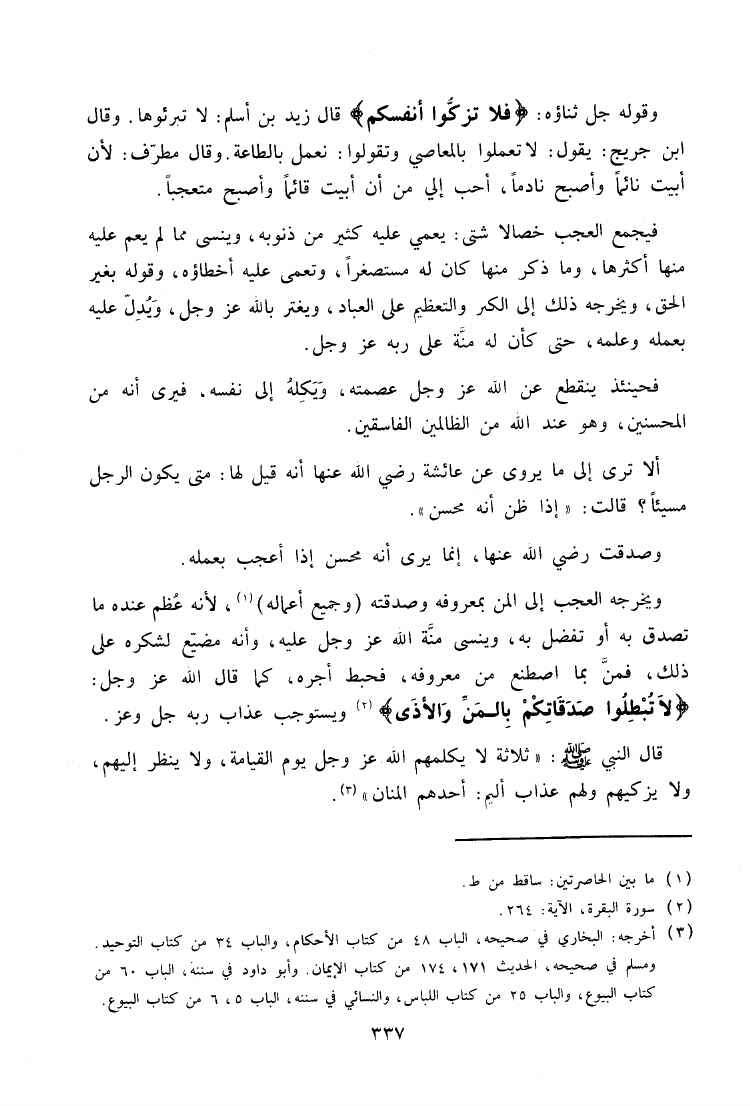 وقوله جل ثناؤه: ﴿فلا تزكُّوا أنفسكم﴾ قال زيد بن أسلم: لا تبرئوها. وقال
ابن جريج: يقول: لا تعملوا بالمعاصي وتقولوا: نعمل بالطاعة. وقال مطرّف: لأن
أبيت نائماً وأصبح نادماً، أحب إلي من أن أبيت قائماً وأصبح متعجباً.
فيجمع العجب خصالا شتى: يعمي عليه كثير من ذنوبه، وينسى مما لم يعم عليه
منها أكثرها، وما ذكر منها كان له مستصغراً، وتعمى عليه أخطاؤه، وقوله بغير
الحق، ويخرجه ذلك إلى الكبر والتعظيم على العباد، ويغتر بالله عز وجل، وَيُدِلّ عليه
بعمله وعلمه، حتى كأن له منَّة على ربه عز وجل.
فحينئذ ينقطع عن الله عز وجل عصمته، وَيَكِلهُ إلى نفسه. فيرى أنه من
المحسنين، وهو عند الله من الظالمين الفاسقين.
ألا ترى إلى ما يروى عن عائشة رضي الله عنها أنه قيل لها: متى يكون الرجل
مسيئاً؟ قالت: «إذا ظن أنه محسن».
وصدقت رضي الله عنها، إنما يرى أنه محسن إذا أعجب بعمله.
ويخرجه العجب إلى المن بمعروفه وصدقته (وجميع أعماله)(١)، لأنه عُظم عنده ما
تصدق به أو تفضل به، وينسى منَّة الله عز وجل عليه، وأنه مضيّع لشكره على
ذلك، فمنَّ بما اصطنع من معروفه، فحبط أجره، كما قال الله عز وجل:
﴿لاَ تُبْطِلُوا صَدَقَاتِكُمْ بِالـمَنِّ وَالأذَى﴾(٢) ويستوجب عذاب ربه جل وعز.
قال النبي ﷺ: «ثلاثة لا يكلمهم الله عز وجل يوم القيامة، ولا ينظر إليهم،
ولا يزكيهم ولهم عذاب أليم: أحدهم المنان»(٣).
(١) ما بين الحاصرتين: ساقط من ط.
(٢) سورة البقرة، الآية: ٢٦٤.
(٣) أخرجه: البخاري في صحيحه، الباب ٤٨ من كتاب الأحكام، والباب ٣٤ من كتاب التوحيد.
ومسلم في صحيحه، الحديث ١٧١، ١٧٤ من كتاب الإيمان. وأبو داود في سننه، الباب ٦٠ من
كتاب البيوع، والباب ٢٥ من كتاب اللباس، والنسائي في سننه، الباب ٥، ٦ من كتاب البيوع.
٣٣٧